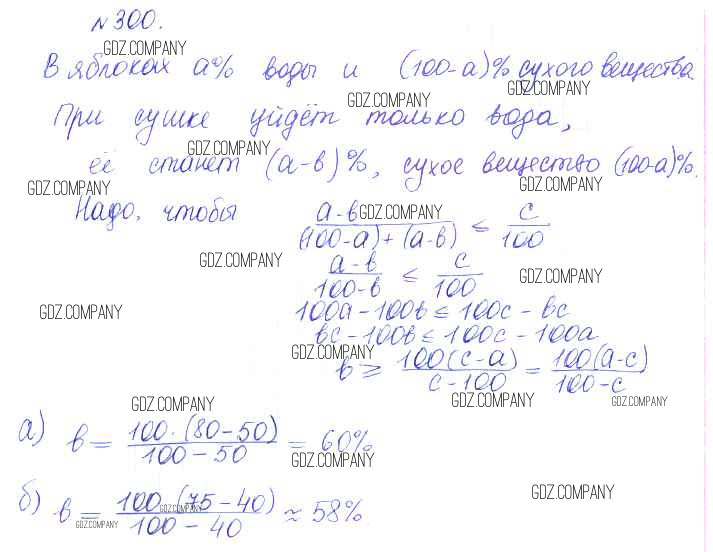 №300.
GDZ.COMPANY
В яблоках a% воды и (100-a)% сухого вещества
GDZ.COMPANY
GDZ.COMPANY
При сушке уйдёт только вода,
GDZ.COMPANY
её станет (a-в)%, сухое вещество (100-a)%.
GDZ.COMPANY
GDZ.COMPANY
Надо, чтобы (a-в)/((100-a)+(a-в)) ≤ c/100
GDZ.COMPANY
GDZ.COMPANY
(a-в)/(100-в) ≤ c/100
GDZ.COMPANY
GDZ.COMPANY
100a-100в ≤ 100c-вc
вc-100в ≤ 100c-100a
GDZ.COMPANY
в ≥ 100(c-a)/(c-100) = 100(a-c)/(100-c)
GDZ.COMPANY
GDZ.COMPANY
GDZ.COMPANY
а) в = 100·(80-50)/(100-50) = 60%
GDZ.COMPANY
GDZ.COMPANY
б) в = 100·(75-40)/(100-40) ≈ 58%
GDZ.COMPANY
GDZ.COMPANY